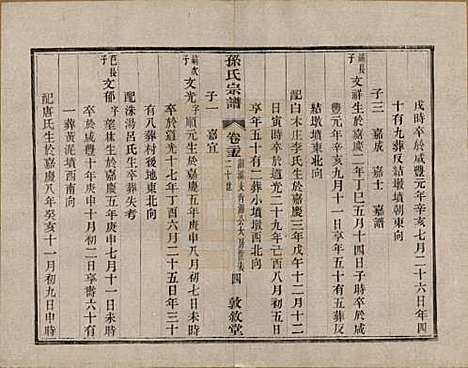 戌時卒於咸豐元年辛亥七月二十六日年四
十有九葬反結墩墳朝東向
子三 嘉成 嘉士 嘉譜
文祥生於嘉慶二年丁巳五月十四日子時卒於咸
豐元年辛亥九月十一日享年五十有五葬反
結墩墳東北向
配白木庄李氏生於嘉慶三年戊午十二月十二
日寅時卒於道光二十九年己酉八月十一日
享年五十有二葬小墳墩西北向
孫氏宗譜 卷 二十世 四 敦敘堂
子一 嘉宜
文光字順元生於嘉慶五年庚申八月初七日未時
卒於道光十七年丁酉六月二十五日年三十
有八葬村後地東北向
配洙湯呂氏生卒葬失考
巴長子
文郁字望林生於嘉慶五年庚申七月十一日未時
卒於咸豐十年庚申十月初二日享壽六十有
一葬黃泥墳西南向
配唐氏生於嘉慶八年癸亥十一月初九日申時